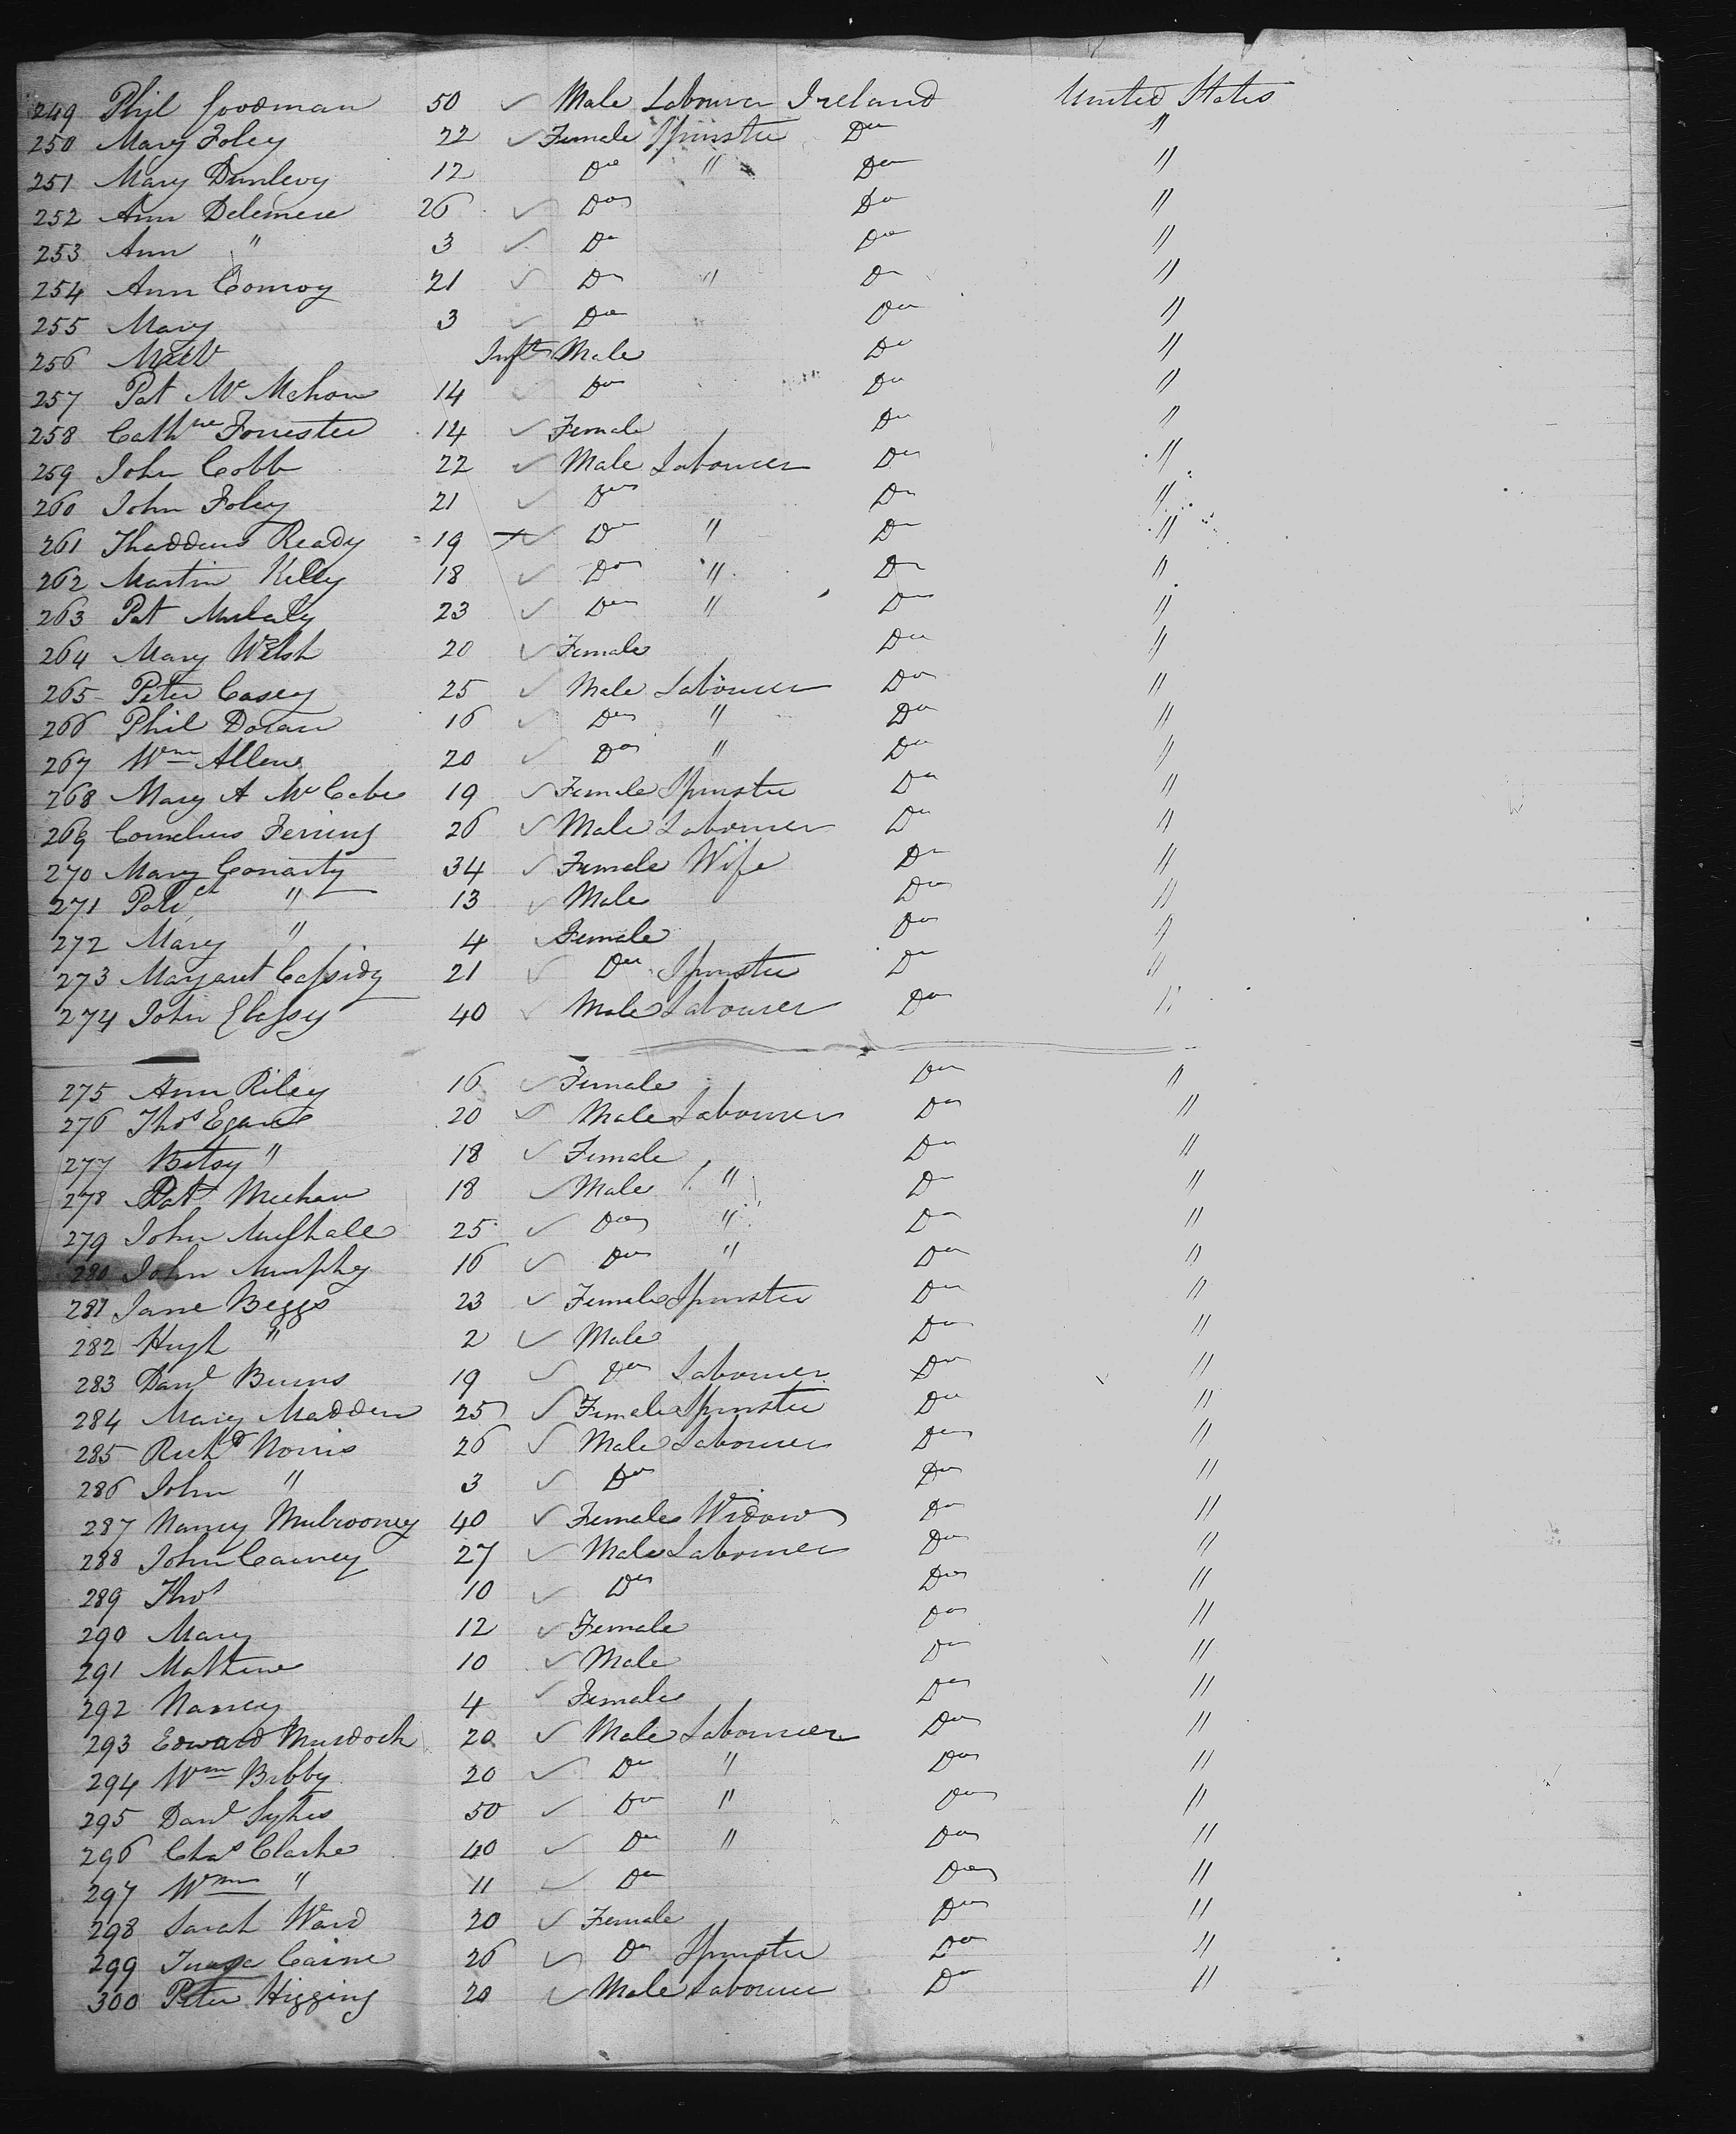 249 Phil Goodman 50 ✓ Male Labourer Ireland United States
250 Mary Foley 22 ✓ Female Spinster Do "
251 Mary Dunlevy 12 Do " Do "
252 Ann Delemere 26 ✓ Do Do "
253 Ann " 3 ✓ Do Do "
254 Ann Conroy 21 ✓ Do " Do "
255 Mary 3 ✓ Do Do "
256 Inft Male Do "
257 Pat McMahon 14 ✓ Do Do "
258 Cathne Forrester 14 ✓ Female Do "
259 John Cobb 22 ✓ Male Labourer Do "
260 John Foley 21 ✓ Do Do "
261 Thaddeus Ready 19 x ✓ Do " Do "
262 Martin Kelly 18 ✓ Do " Do "
263 Pat Mulealy 23 ✓ Do " Do "
264 Mary Welsh 20 ✓ Female Do "
265 Peter Casey 25 ✓ Male Labourer Do "
266 Phil Dolan 16 ✓ Do " Do "
267 Wm Allen 20 ✓ Do " Do "
268 Mary A McCabe 19 ✓ Female Spinster Do "
269 Cornelius 26 ✓ Male Labourer Do "
270 Mary Conarty 34 ✓ Female Wife Do "
271 " 13 ✓ Male Do "
272 Mary " 4 ✓ Female Do "
273 Margaret Cassidy 21 ✓ Do Spinster Do "
274 John Classy 40 ✓ Male Labourer Do "
275 Ann Riley 16 ✓ Female Do "
276 Thos Egan 20 ✓ Male Labourer Do "
277 Betsy " 18 ✓ Female Do "
278 Pat Meehan 18 ✓ Male " Do "
279 John Mulhall 25 ✓ Do " Do "
280 John Murphy 16 ✓ Do " Do "
281 Jane Beggs 23 ✓ Female Spinster Do "
282 Hugh " 2 ✓ Male Do "
283 Danl Burns 19 ✓ Do Labourer Do "
284 Mary Madden 25 ✓ Female Spinster Do "
285 Richd Norris 26 ✓ Male Labourer Do "
286 John " 3 ✓ Do Do "
287 Nancy Mulrooney 40 ✓ Female Widow Do "
288 John Carney 27 ✓ Male Labourer Do "
289 Thos 10 ✓ Do Do "
290 Mary 12 ✓ Female Do "
291 Mathew 10 ✓ Male Do "
292 Nancy 4 ✓ Female Do "
293 Edward Murdock 20 ✓ Male Labourer Do "
294 Wm Bibby 20 ✓ Do " Do "
295 Danl Sykes 50 ✓ Do " Do "
296 Chas Clarke 40 ✓ Do " Do "
297 Wm " 11 ✓ Do Do "
298 Sarah Ward 20 ✓ Female Do "
299 Caine 26 ✓ Do Spinster Do "
300 Peter Higgins 20 ✓ Male Labourer Do "